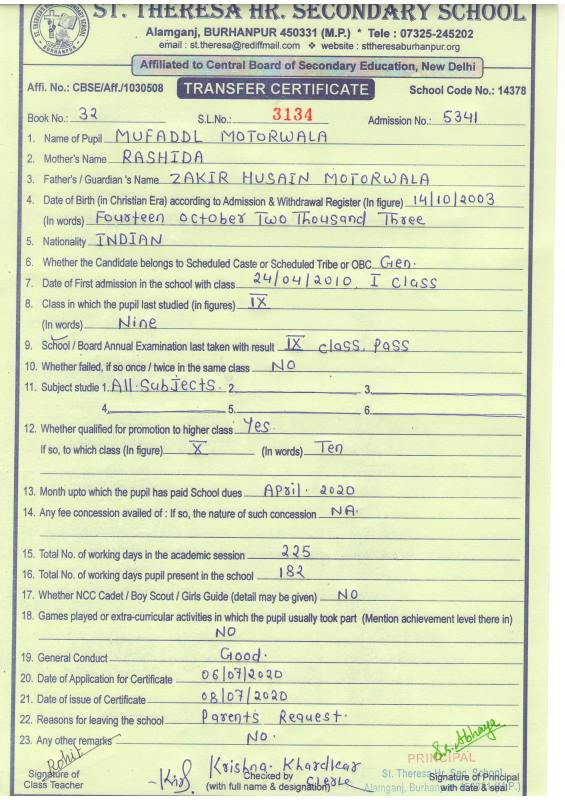 ST. THERESA HR. SECONDARY SCHOOL
BURHANPUR
Alamganj, BURHANPUR 450331 (M.P.) * Tele : 07325-245202
email : st.theresa@rediffmail.com ❖ website : sttheresaburhanpur.org
Affiliated to Central Board of Secondary Education, New Delhi
Affi. No.: CBSE/Aff./1030508 TRANSFER CERTIFICATE School Code No.: 14378
Book No.: 32 S.L.No.: 3134 Admission No.: 5341
1. Name of Pupil MUFADDL MOTORWALA
2. Mother's Name RASHIDA
3. Father's / Guardian 's Name ZAKIR HUSAIN MOTORWALA
4. Date of Birth (in Christian Era) according to Admission & Withdrawal Register (In figure) 14/10/2003
(In words) Fourteen October Two Thousand Three
5. Nationality INDIAN
6. Whether the Candidate belongs to Scheduled Caste or Scheduled Tribe or OBC Gen.
7. Date of First admission in the school with class 24/04/2010 I class
8. Class in which the pupil last studied (in figures) IX
(In words) Nine
9. School / Board Annual Examination last taken with result IX class. Pass
10. Whether failed, if so once / twice in the same class NO
11. Subject studie 1. All Subjects. 2. 3.
4. 5. 6.
12. Whether qualified for promotion to higher class Yes.
If so, to which class (In figure) X (In words) Ten
13. Month upto which the pupil has paid School dues April. 2020
14. Any fee concession availed of : If so, the nature of such concession NA.
15. Total No. of working days in the academic session 225
16. Total No. of working days pupil present in the school 182
17. Whether NCC Cadet / Boy Scout / Girls Guide (detail may be given) NO
18. Games played or extra-curricular activities in which the pupil usually took part (Mention achievement level there in)
NO
19. General Conduct Good.
20. Date of Application for Certificate 06/07/2020
21. Date of issue of Certificate 08/07/2020
22. Reasons for leaving the school Parents Request.
23. Any other remarks NO.
Rohit
Krishna Khardkar
PRINCIPAL
Signature of
Class Teacher
Checked by
(with full name & designation)
St. Theresa Hr. Sec. School
Signature of Principal
with date & seal